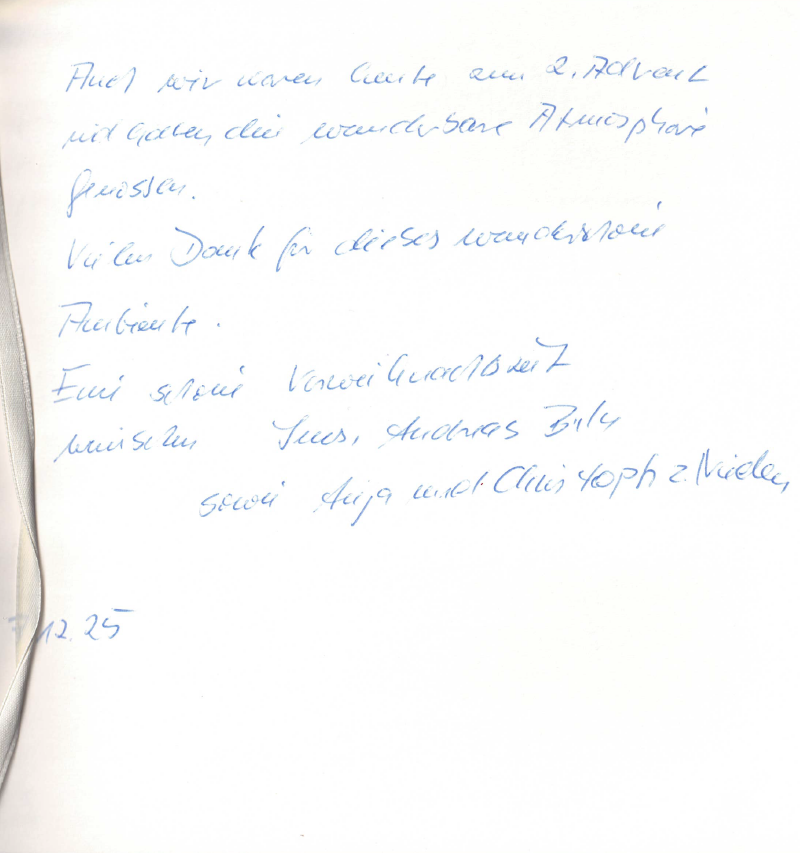 Auch wir waren heute am 2. Advent
und haben die wunderbare Atmosphäre
genossen.
Vielen Dank für dieses wunderschöne
Ambiente.
Eine schöne Vorweihnachtszeit
wünschen Ines, Andreas
sowie Anja und Christoph z. Nieden
7.12.25